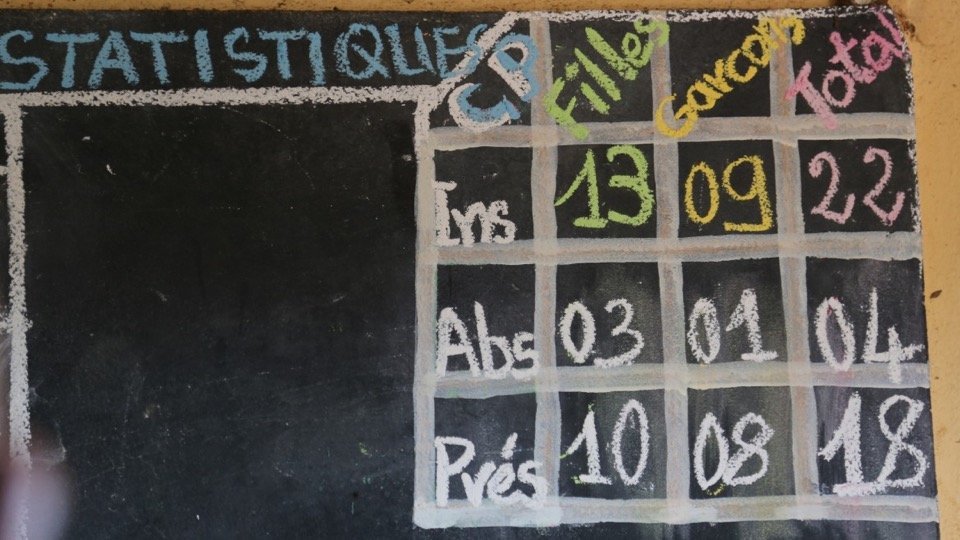 STATISTIQUES
CP Filles Garcons Total
Ins 13 09 22
Abs 03 01 04
Prés 10 08 18